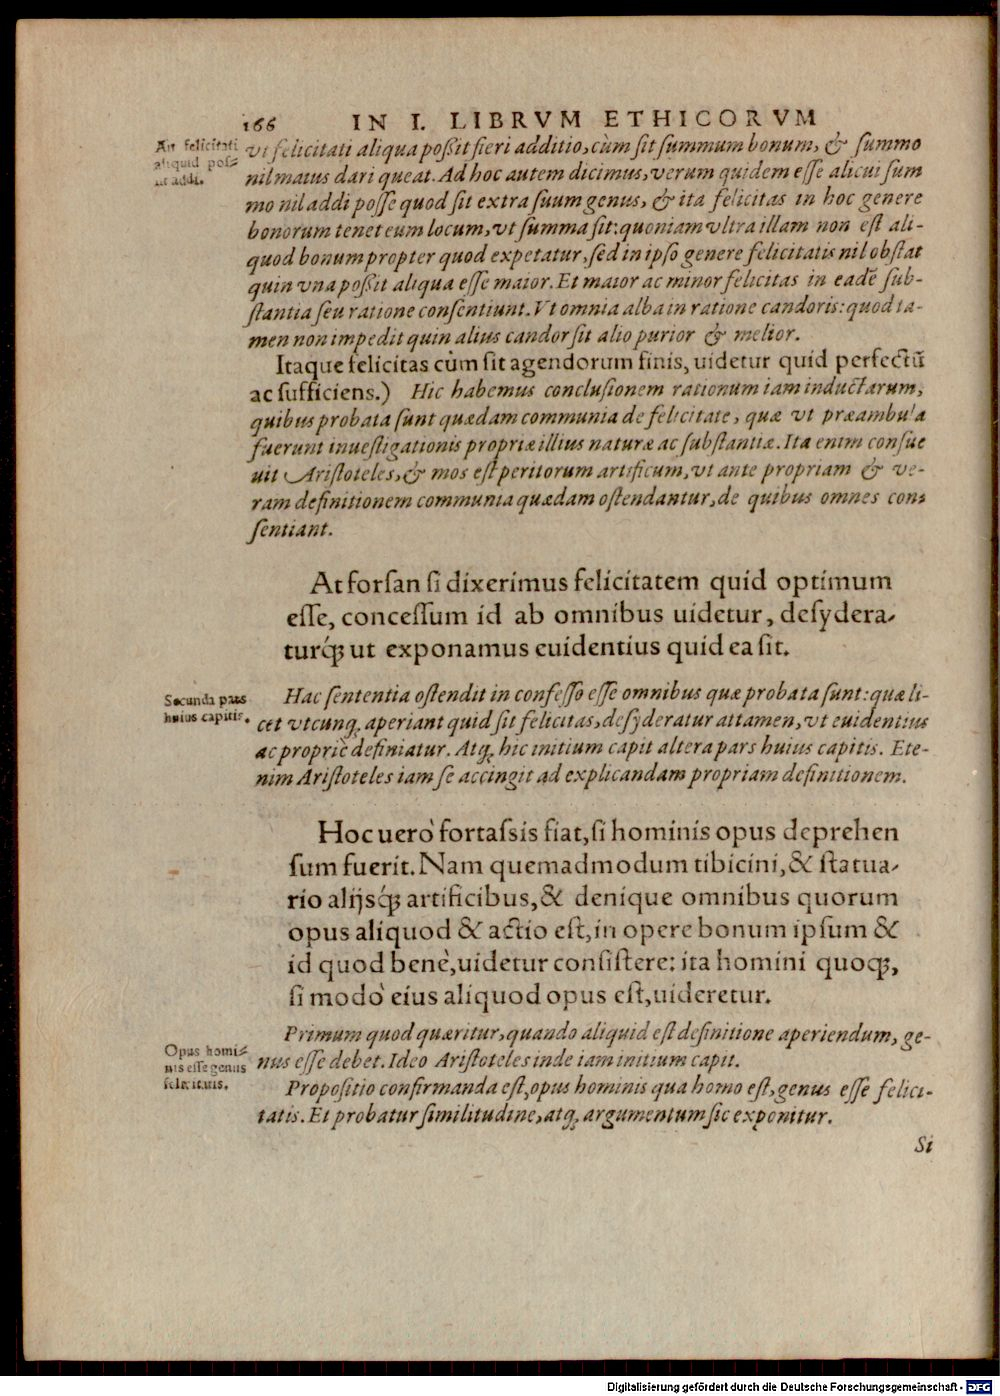 166 IN I. LIBRVM ETHICORVM
An felicitati
aliquid poſ⸗
ſit addi.
vt felicitati aliqua poßit fieri additio, cùm ſit ſummum bonum, & ſummo
nil maius dari queat. Ad hoc autem dicimus, verum quidem eſſe alicui ſum
mo nil addi poſſe quod ſit extra ſuum genus, & ita felicitas in hoc genere
bonorum tenet eum locum, vt ſumma ſit: quoniam vltra illam non eſt ali-
quod bonum propter quod expetatur, ſed in ipſo genere felicitatis nil obſtat
quin vna poßit aliqua eſſe maior. Et maior ac minor felicitas in eadẽ ſub-
ſtantia ſeu ratione conſentiunt. Vt omnia alba in ratione candoris: quod ta-
men non impedit quin alius candor ſit alio purior & melior.
Itaque felicitas cùm ſit agendorum finis, uidetur quid perfectũ
ac ſufficiens.) Hic habemus concluſionem rationum iam inductarum,
quibus probata ſunt quædam communia de felicitate, quæ vt præambula
fuerunt inueſtigationis propriæ illius naturæ ac ſubſtantiæ. Ita enim conſue
uit Ariſtoteles, & mos eſt peritorum artificum, vt ante propriam & ve-
ram definitionem communia quædam oſtendantur, de quibus omnes con⸗
ſentiant.
At forſan ſi dixerimus felicitatem quid optimum
eſſe, conceſſum id ab omnibus uidetur, deſydera⸗
turq́ꝫ ut exponamus euidentius quid ea ſit.
Secunda pars
huius capitis.
Hac ſententia oſtendit in confeſſo eſſe omnibus quæ probata ſunt: quæ li-
cet vtcunqꝫ aperiant quid ſit felicitas, deſyderatur attamen, vt euidentius
ac propriè definiatur. Atqꝫ hic initium capit altera pars huius capitis. Ete-
nim Ariſtoteles iam ſe accingit ad explicandam propriam definitionem.
Hoc uerò fortaſsis fiat, ſi hominis opus deprehen
ſum fuerit. Nam quemadmodum tibicini, & ſtatua⸗
rio alijsq́ꝫ artificibus, & denique omnibus quorum
opus aliquod & actio eſt, in opere bonum ipſum &
id quod benè, uidetur conſiſtere: ita homini quoqꝫ,
ſi modò eius aliquod opus eſt, uideretur.
Opus homi⸗
nis eſſe genus
felicitatis.
Primum quod quæritur, quando aliquid eſt definitione aperiendum, ge-
nus eſſe debet. Ideo Ariſtoteles inde iam initium capit.
Propoſitio confirmanda eſt, opus hominis qua homo eſt, genus eſſe felici-
tatis. Et probatur ſimilitudine, atqꝫ argumentum ſic exponitur.
Si
Digitalisierung gefördert durch die Deutsche Forschungsgemeinschaft - DFG